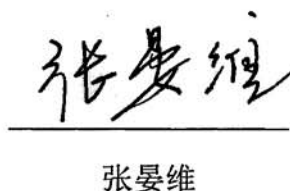 张晏维
张晏维